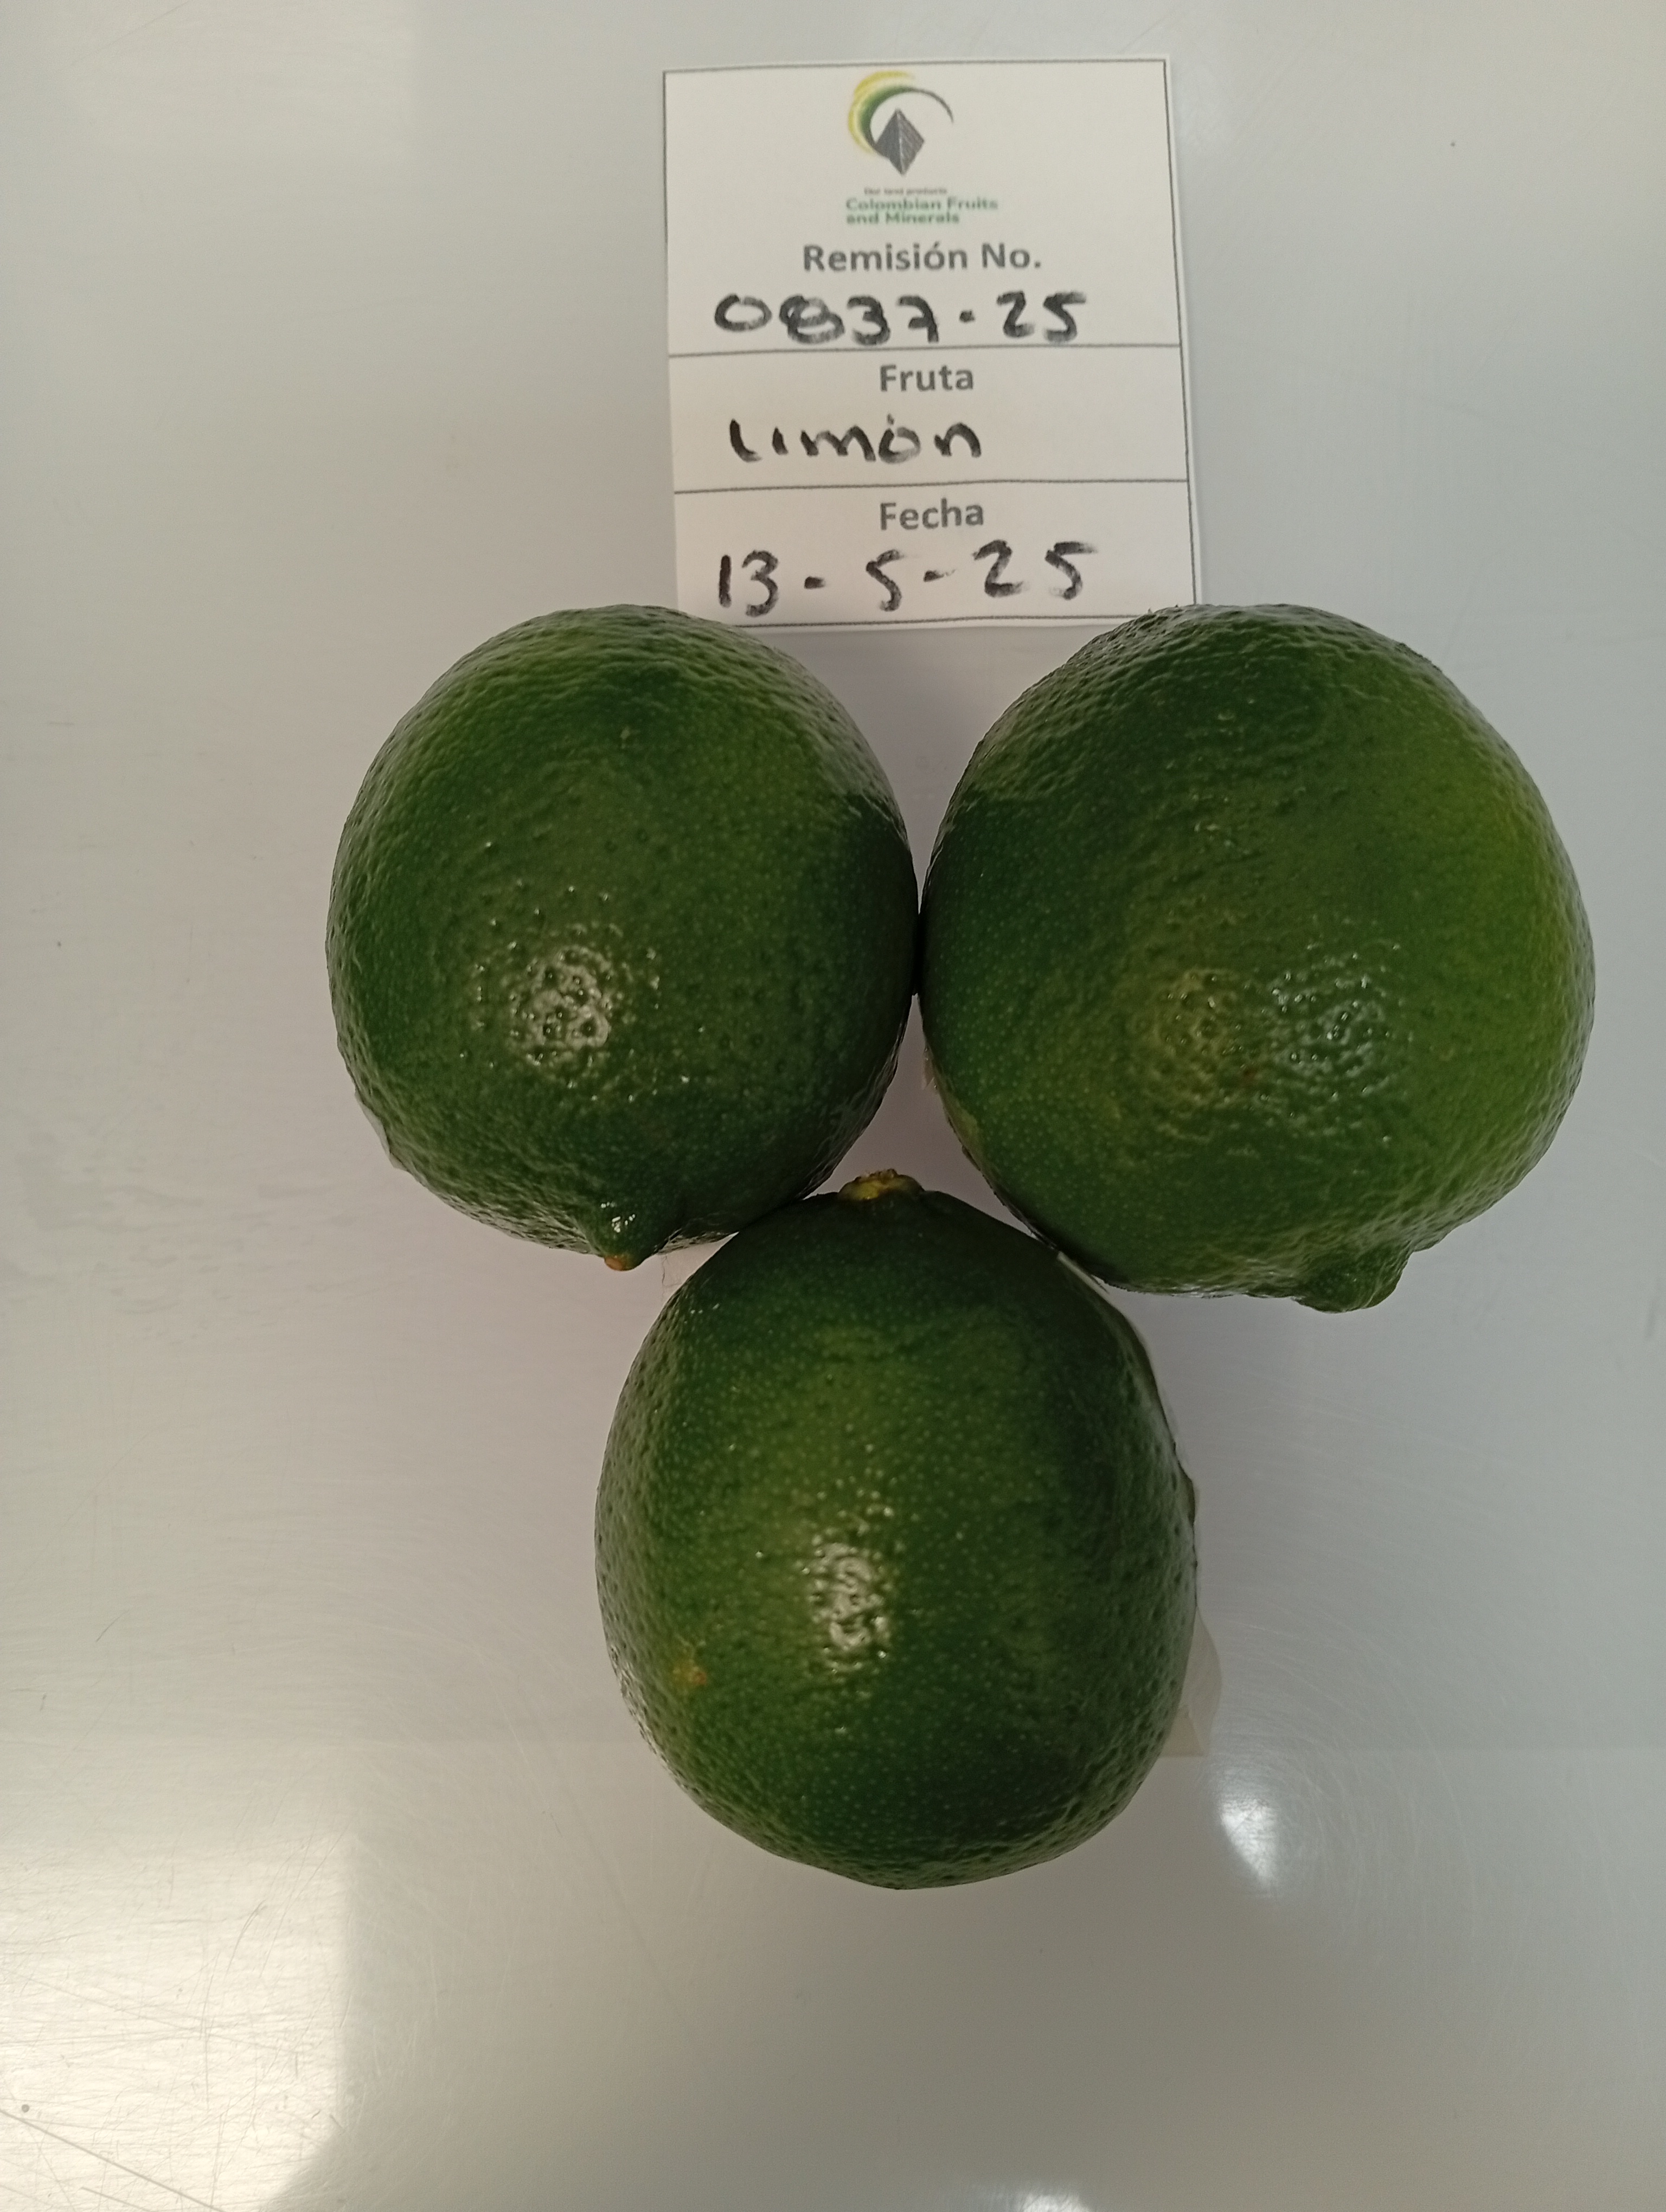 Our land products
Colombian Fruits
and Minerals
Remisión No.
0837-25
Fruta
Limón
Fecha
13-5-25